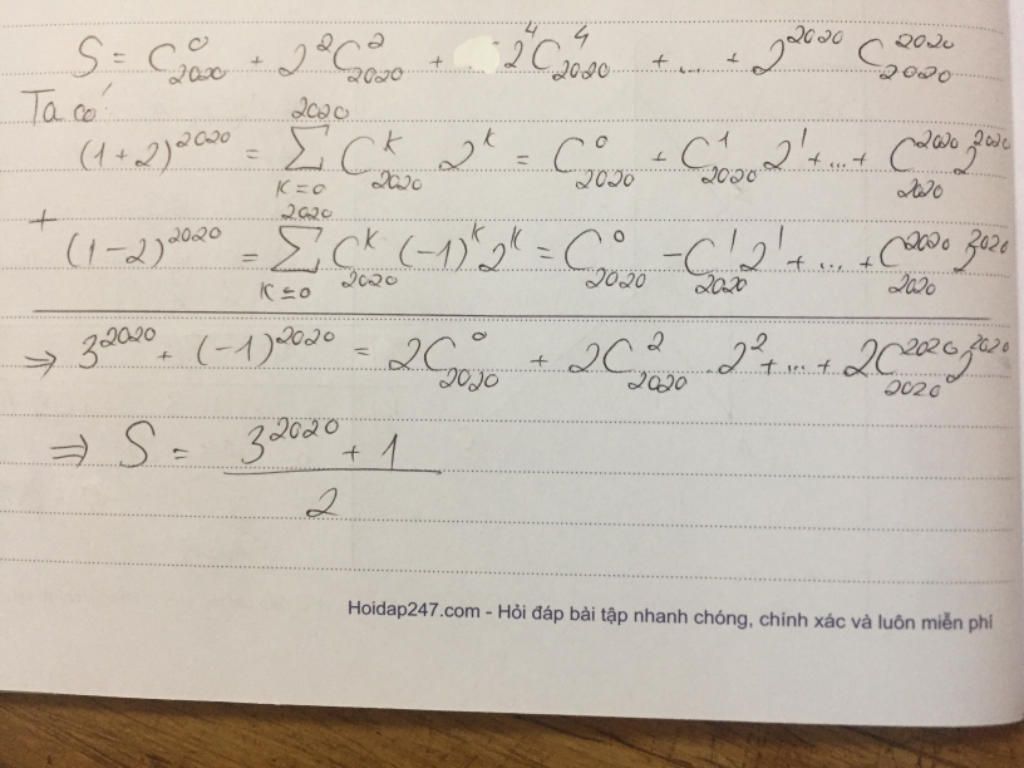 S = C⁰₂₀₂₀ + 2²C²₂₀₂₀ + 2⁴C⁴₂₀₂₀ + ... + 2²⁰²⁰ C²⁰²⁰₂₀₂₀
Ta có
(1+2)²⁰²⁰ = ∑_{K=0}^{2020} C^K_{2020} 2^K = C⁰₂₀₂₀ + C¹₂₀₂₀ 2¹ + ... + C²⁰²⁰₂₀₂₀ 2²⁰²⁰
+
(1-2)²⁰²⁰ = ∑_{K=0}^{2020} C^K_{2020} (-1)^K 2^K = C⁰₂₀₂₀ - C¹₂₀₂₀ 2¹ + ... + C²⁰²⁰₂₀₂₀ 2²⁰²⁰
⇒ 3²⁰²⁰ + (-1)²⁰²⁰ = 2C⁰₂₀₂₀ + 2C²₂₀₂₀ . 2² + ... + 2C²⁰²⁰₂₀₂₀ 2²⁰²⁰
⇒ S = (3²⁰²⁰ + 1)/2
Hoidap247.com - Hỏi đáp bài tập nhanh chóng, chính xác và luôn miễn phí